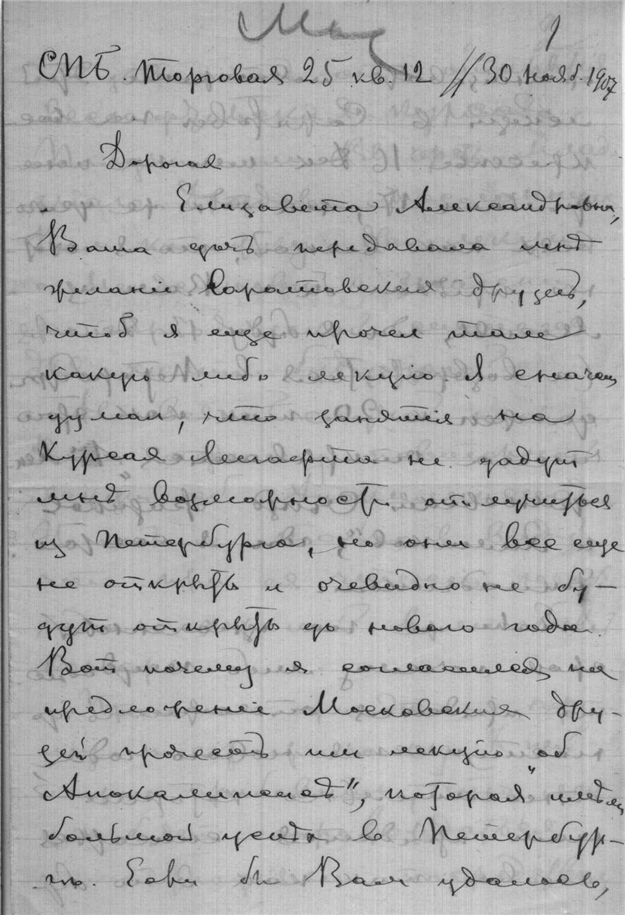 1
СПБ. Торговая 25 кв. 12 // 30 нояб. 1907
Дорогая
Елизавета Александровна,
Ваша дочь передавала мнѣ
желаніе Саратовских друзей,
чтоб я еще прочел там
какую либо лекцію. Я сначала
думал, что занятія на
Курсах Лесгафта не дадут
мнѣ возможность отлучиться
из Петербурга, но они все еще
не открыты и очевидно не бу-
дут открыты до нового года.
Вот почему я согласился на
предложеніе Московских дру-
зей прочесть им лекцію „об
Апокалипсисѣ", которая имѣла
большой успѣх в Петербур-
гѣ. Если бы Вам удалось,